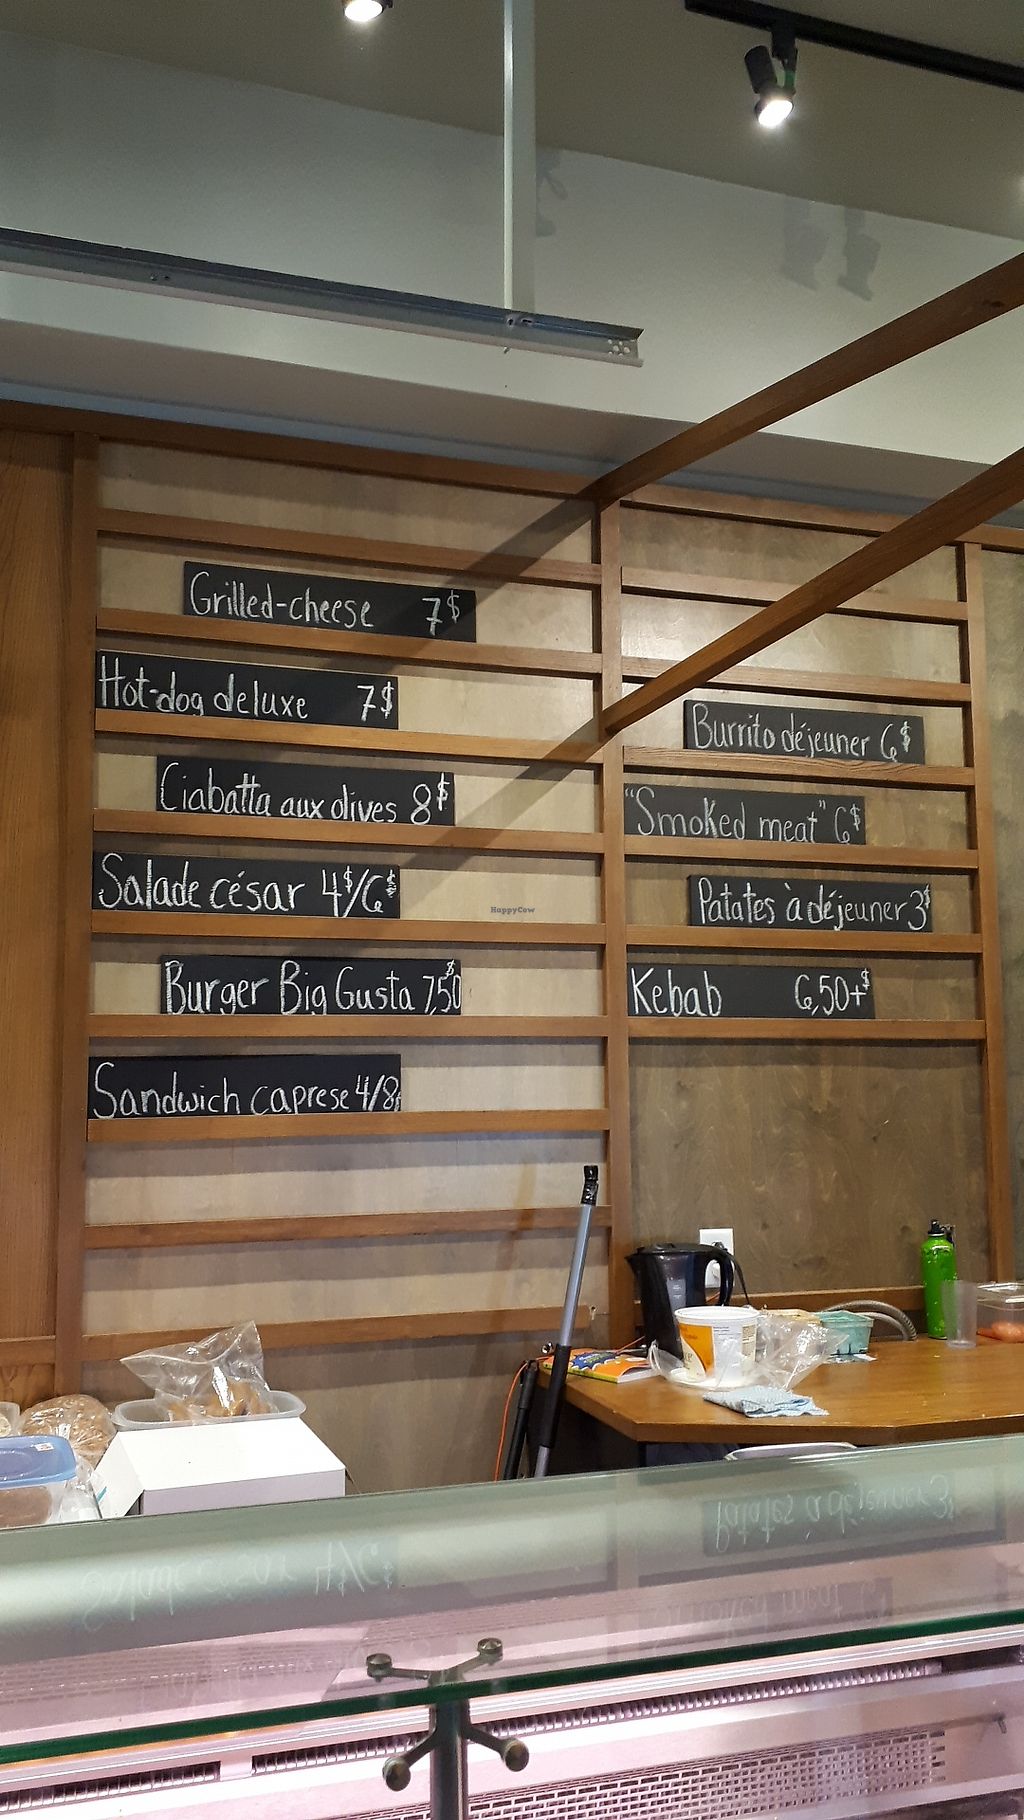 Grilled-cheese 7$
Hot-dog deluxe 7$
Ciabatta aux olives 8$
Salade césar 4$/6$
Burger Big Gusta 7,50$
Sandwich caprese 4/8$
Burrito déjeuner 6$
"Smoked meat" 6$
Patates à déjeuner 3$
Kebab 6,50+$
HappyCow